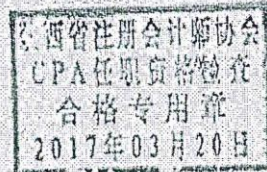 西省注册会计师协会
CPA任职资格检查
合格专用章
2017年03月20日